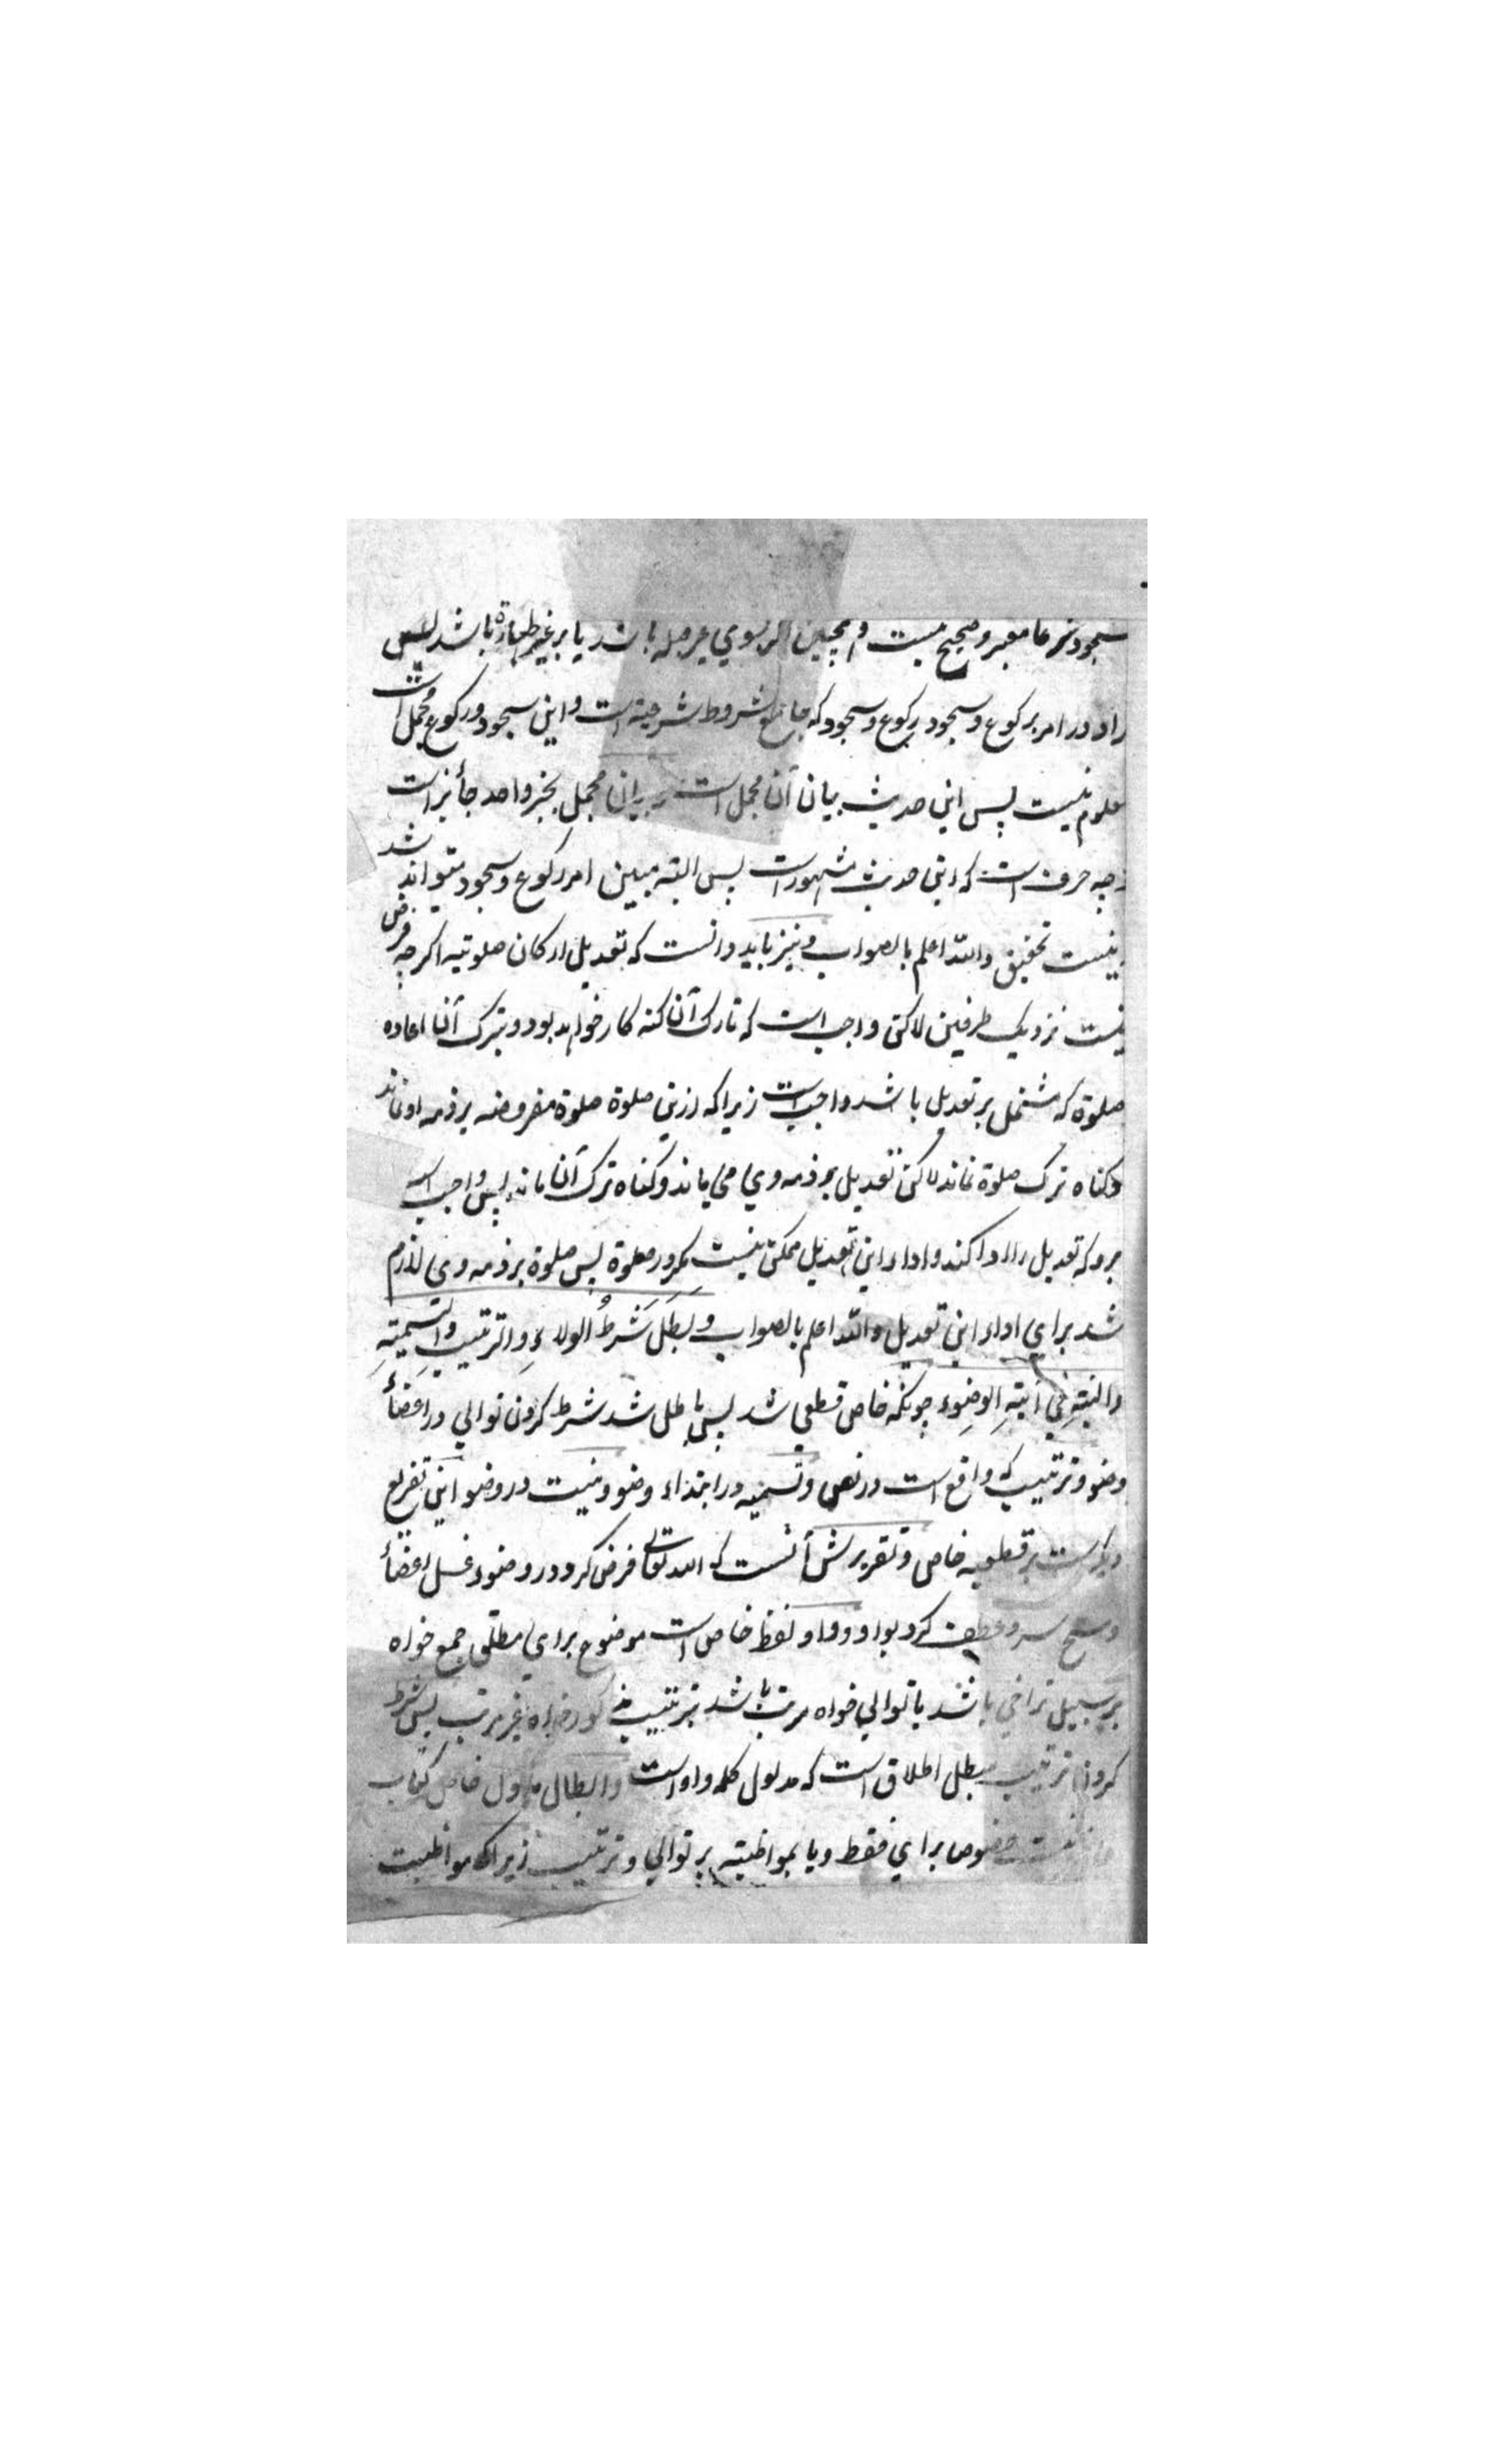 سجود شرعا معتبر و صحیح نیست و همچنین اگر بسوی غیر قبله باشد یا بر غیر طهارة باشد پس
مراد در امر برکوع و سجود رکوع و سجود که جامع شروط شرعیه است و این سجود و رکوع مجمل است
معلوم نیست پس این حدیث بیان آن مجمل است و بیان مجمل بخبر واحد جائز است
چه حرف است که این حدیث مشهور است پس البته مبین امر رکوع و سجود میتواند شد
نیست تحقیق والله اعلم بالصواب و نیز باید دانست که تعدیل ارکان صلوتیه اگرچه فرض
نیست نزدیک طرفین لاکن واجب است که تارک آن گنه کار خواهد بود و بترک آن اعاده
صلوة که مشتمل بر تعدیل باشد واجب است زیراکه ازین صلوة صلوة مفروضه بر ذمه او نماند
و گناه ترک صلوة نماند لاکن تعدیل بر ذمه وی می ماند و گناه ترک آن ماند پس واجب است
برو که تعدیل را ادا کند و اداء این تعدیل ممکن نیست مگر در صلوة پس صلوة بر ذمه وی لازم
شد برای اداء این تعدیل والله اعلم بالصواب وبَطَلَ شَرطُ الولاءِ والترتیبِ والتسمیةِ
والنیةِ فی آیةِ الوضوءِ چونکه خاص قطعی شد پس باطل شد شرط کردن توالی در اعضاء
وضو و ترتیب که واقع است در نص و تسمیه در ابتداء وضو و نیت در وضو این تفریع
دیگرست بر قطعیه خاص و تقریرش آنست که الله تعالی فرض کرد در وضوء غسل اعضاء
و مسح سر و عطف کرد بواو و واو لفظ خاص است موضوع برای مطلق جمع خواه
بر سبیل تراخی باشد یا توالی خواه مرتب باشد بترتیب مذکور خواه غیر مرتب پس شرط
کردن ترتیب مبطل اطلاق است که مدلول کلمه واو است و ابطال مدلول خاص کتاب
برای فقط و یا بمواظبته بر توالی و ترتیب زیراکه مواظبت